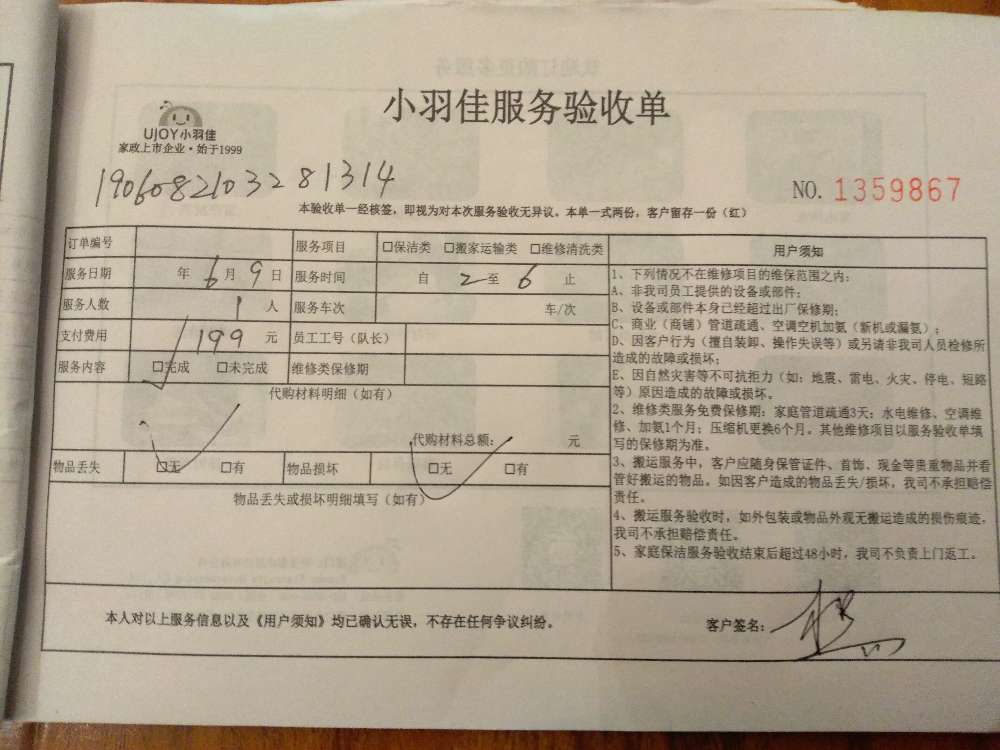 小羽佳服务验收单
UJOY小羽佳
家政上市企业·始于1999
1906082103281314
NO. 1359867
本验收单一经核签，即视为对本次服务验收无异议。本单一式两份，客户留存一份（红）
订单编号 服务项目 □保洁类 □搬家运输类 □维修清洗类
服务日期 年 6 月 9 日 服务时间 自 2 至 6 止
服务人数 1 人 服务车次 车/次
支付费用 199 元 员工工号（队长）
服务内容 □完成 □未完成 维修类保修期
代购材料明细（如有）
代购材料总额： 元
物品丢失 □无 □有 物品损坏 □无 □有
物品丢失或损坏明细填写（如有）
用户须知
1、下列情况不在维修项目的维保范围之内：
A、非我司员工提供的设备或部件；
B、设备或部件本身已经超过出厂保修期；
C、商业（商铺）管道疏通、空调空机加氨（新机或漏氨）；
D、因客户行为（擅自装卸、操作失误等）或另请非我司人员检修所
造成的故障或损坏；
E、因自然灾害等不可抗拒力（如：地震、雷电、火灾、停电、短路
等）原因造成的故障或损坏。
2、维修类服务免费保修期：家庭管道疏通3天；水电维修、空调维
修、加氨1个月；压缩机更换6个月。其他维修项目以服务验收单填
写的保修期为准。
3、搬运服务中，客户应随身保管证件、首饰、现金等贵重物品并看
管好搬运的物品。如因客户造成的物品丢失/损坏，我司不承担赔偿
责任。
4、搬运服务验收时，如外包装或物品外观无搬运造成的损伤痕迹，
我司不承担赔偿责任。
5、家庭保洁服务验收结束后超过48小时，我司不负责上门返工。
本人对以上服务信息以及《用户须知》均已确认无误，不存在任何争议纠纷。
客户签名：